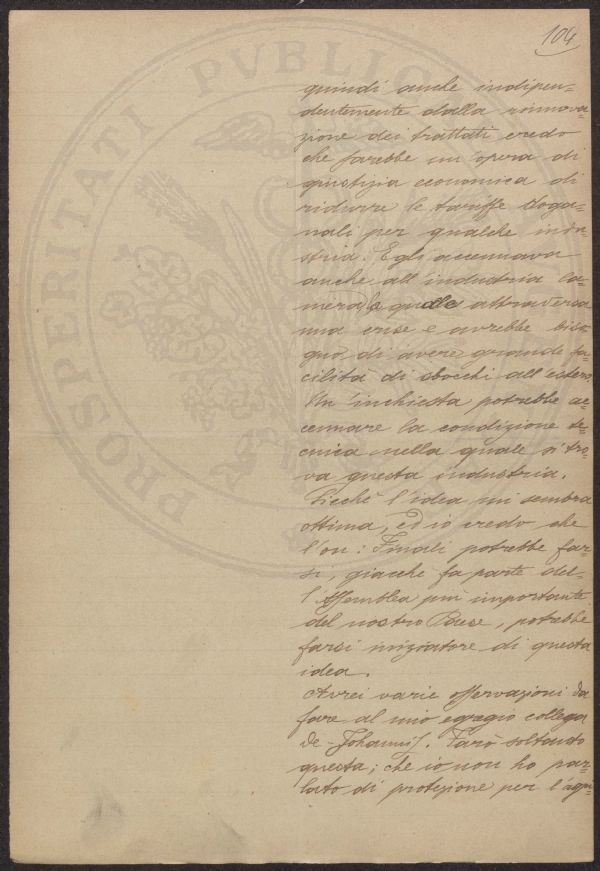 104
quindi anche indipen=
dentemente dalla rinnova=
zione dei trattati credo
che farebbe un'opera di
giustizia economica di
ridurre le tariffe doga=
nali per qualche indu=
stria. Egli accennava
anche all'industria la=
niera, la quale attraversa
una crise e avrebbe biso=
gno di avere grande fa=
cilità di sbocchi all'estero.
Un'inchiesta potrebbe ac=
cennare la condizione te=
cnica nella quale si tro=
va questa industria.
Sicchè l'idea mi sembra
ottima, ed io credo che
l'on: Finali potrebbe far=
si, giacchè fa parte del=
l'Assemblea più importante
del nostro Paese, potrebbe
farsi iniziatore di questa
idea.
Avrei varie osservazioni da
fare al mio egregio collega
De-Johannis. Farò soltanto
questa; che io non ho par=
lato di protezione per l'agri=
PROSPERITATI PVBLIC